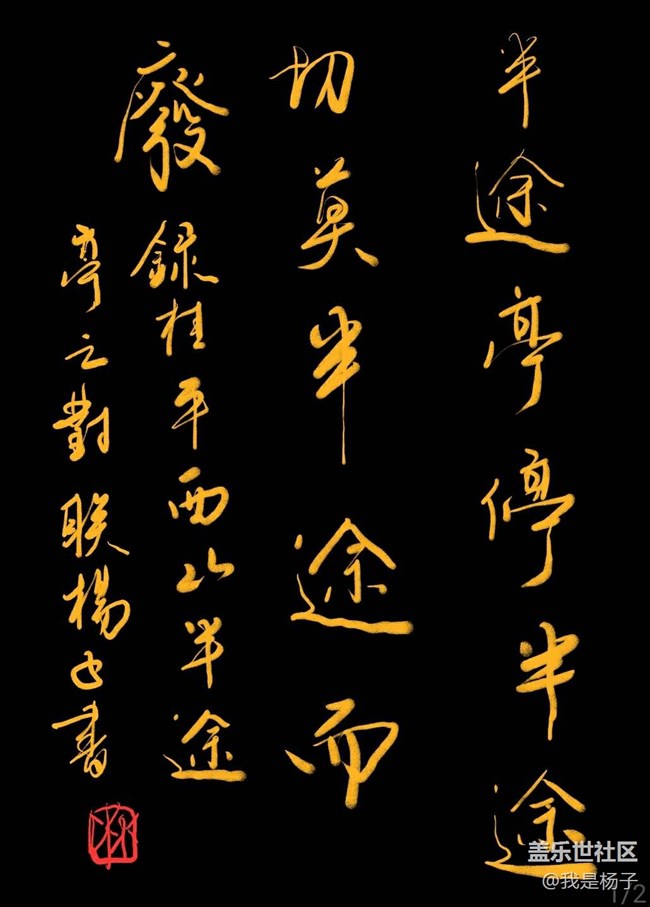 半途亭停半途
切莫半途而
廢
録桂平西山半途
亭之對联楊子書
盖乐世社区
@我是杨子
1/2